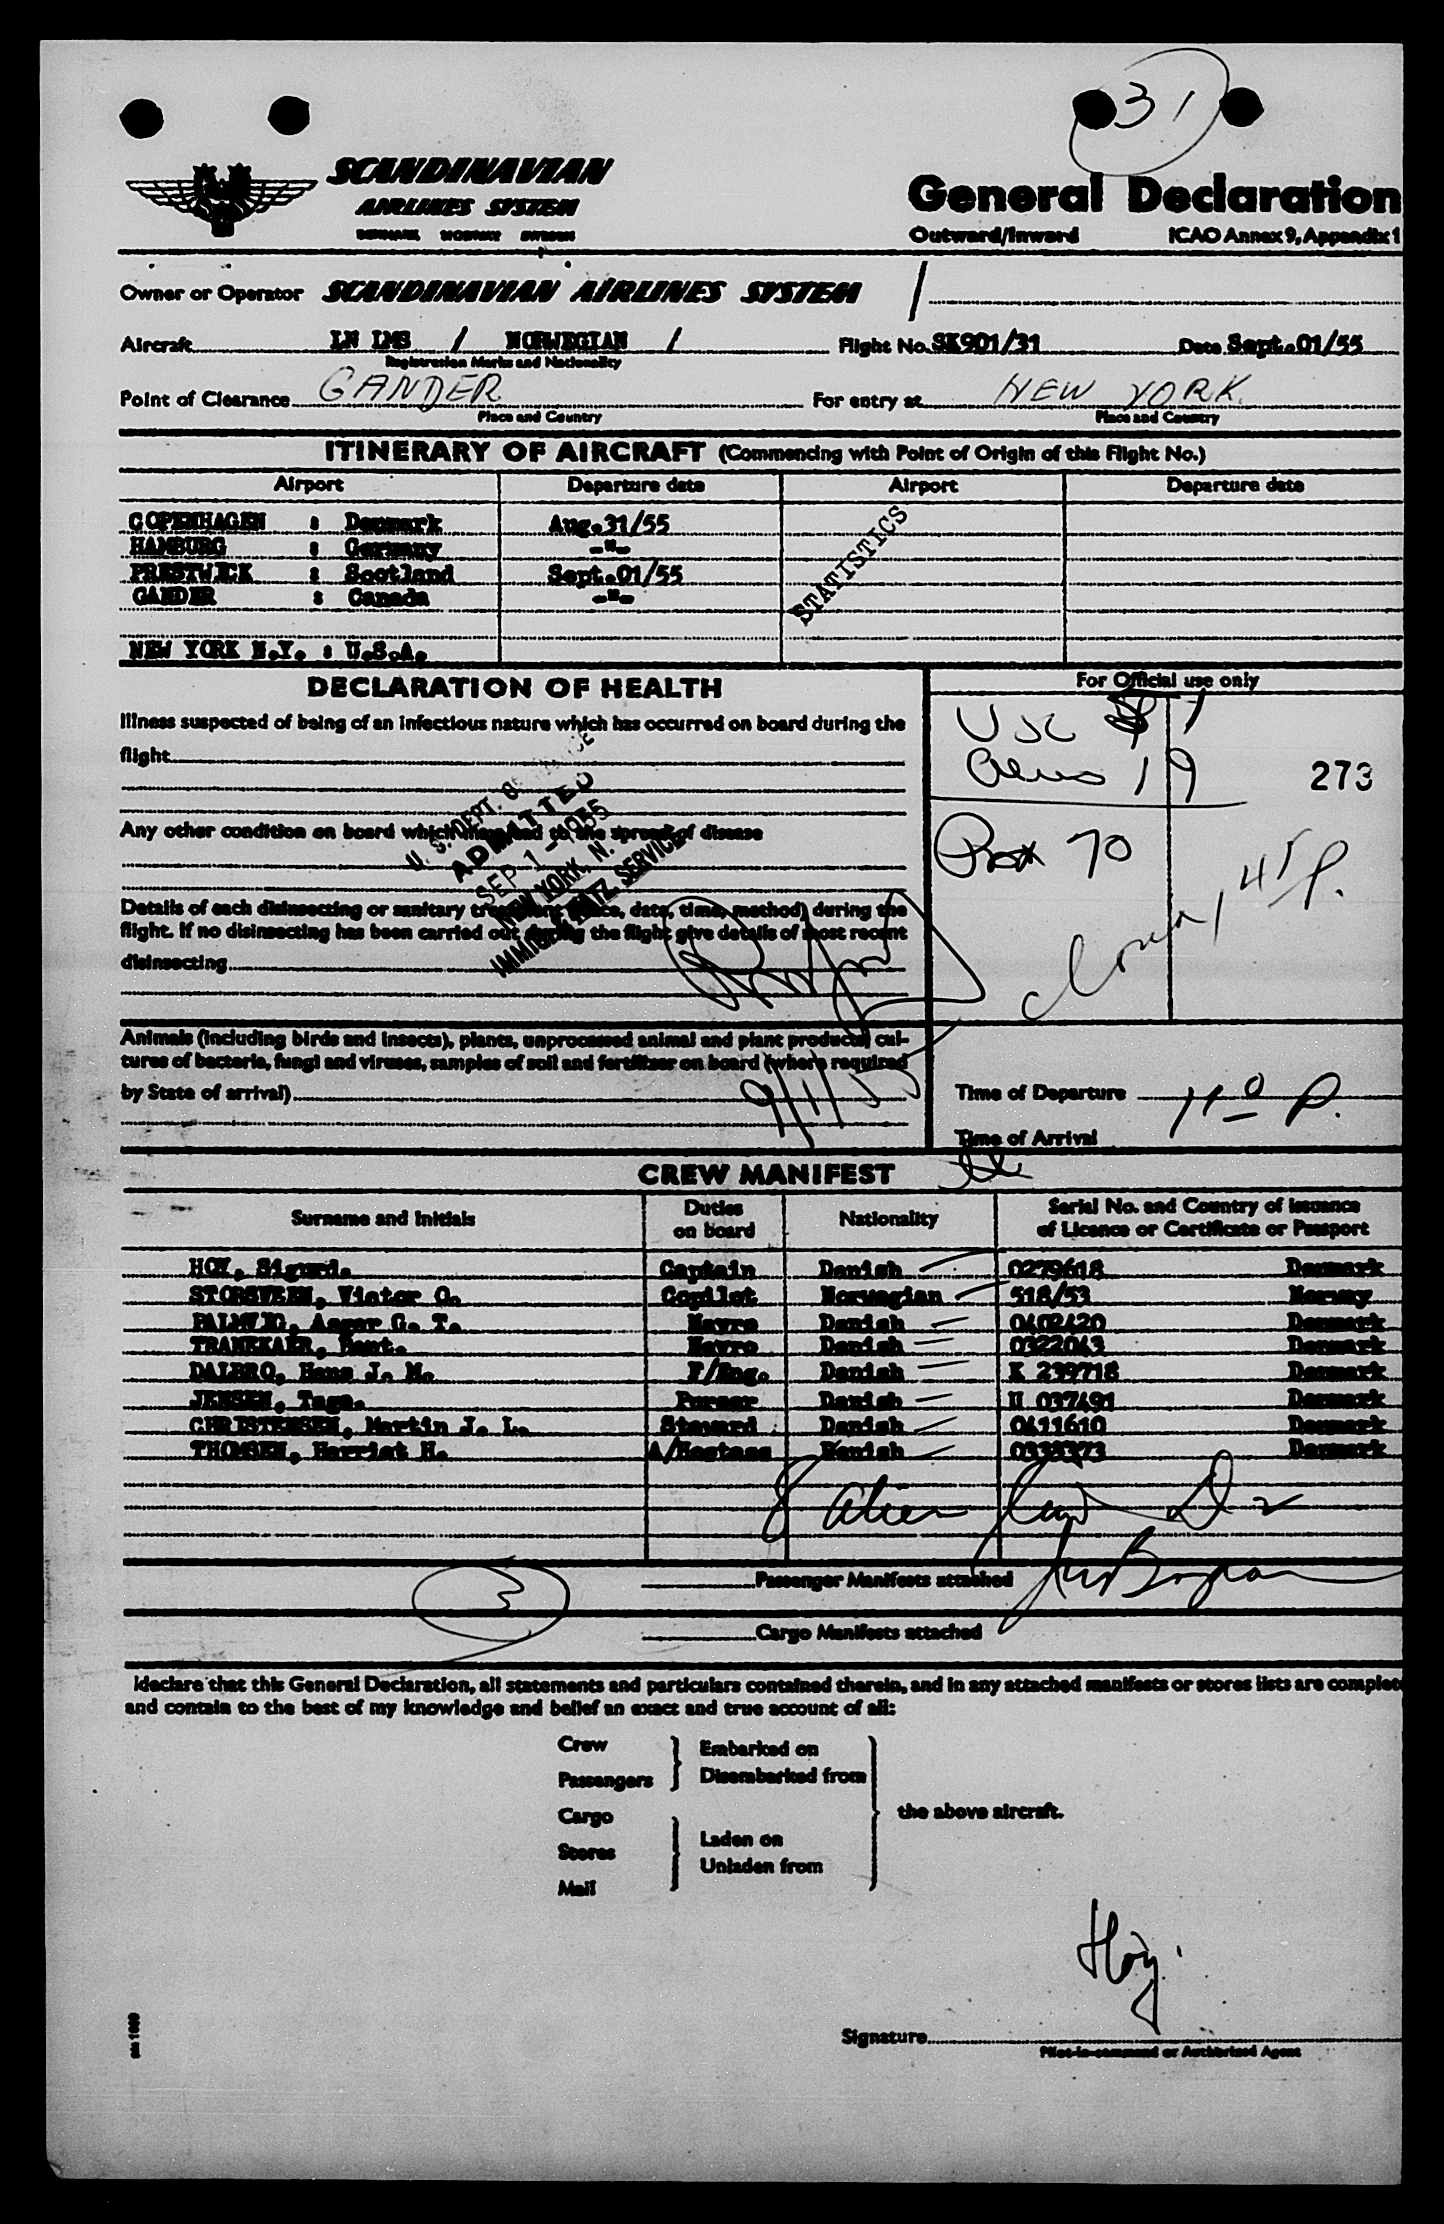 31
SCANDINAVIAN
AIRLINES SYSTEM
DENMARK NORWAY SWEDEN
General Declaration
Outward/Inward ICAO Annex 9, Appendix 1
Owner or Operator SCANDINAVIAN AIRLINES SYSTEM /
Aircraft LN LMS / NORWEGIAN / Flight No. SK901/31 Date Sept.01/55
Registration Marks and Nationality
Point of Clearance GANDER For entry at NEW YORK.
Place and Country Place and Country
ITINERARY OF AIRCRAFT (Commencing with Point of Origin of this Flight No.)
Airport Departure date Airport Departure date
COPENHAGEN : Denmark Aug.31/55
HAMBURG : Germany -"-
PRESTWICK : Scotland Sept.01/55
GANDER : Canada -"-
NEW YORK N.Y. : U.S.A.
STATISTICS
DECLARATION OF HEALTH
Illness suspected of being of an infectious nature which has occurred on board during the
flight
Any other condition on board which may lead to the spread of disease
Details of each disinsecting or sanitary treatment (place, date, time, method) during the
flight. If no disinsecting has been carried out during the flight give details of most recent
disinsecting
U. S. DEPT. OF JUSTICE
ADMITTED
SEP 1 - 1955
NEW YORK, N. Y.
IMMIG. & NATZ. SERVICE
For Official use only
USC 7
Aliens 19
273
70
45 P.
Animals (including birds and insects), plants, unprocessed animal and plant products, cul-
tures of bacteria, fungi and viruses, samples of soil and fertilizer on board (where required
by State of arrival)
9/1/55
Time of Departure
Time of Arrival
CREW MANIFEST
Surname and Initials Duties on board Nationality Serial No. and Country of issuance of Licence or Certificate or Passport
HOY, Sigurd. Captain Danish 0279618 Denmark
STORSVEEN, Victor O. Copilot Norwegian 518/53 Norway
PALMVIG, Aager G. T. Navro Danish 0402420 Denmark
TRANEKAER, Bent. Navro Danish 0322043 Denmark
DALBRO, Hans J. M. F/Eng. Danish K 239718 Denmark
JENSEN, Tage. Purser Danish U 037491 Denmark
CHRISTENSEN, Martin J. L. Steward Danish 0411610 Denmark
THOMSEN, Harriet H. A/Hostess Danish 0333373 Denmark
8 alien
3
Passenger Manifests attached
Cargo Manifests attached
I declare that this General Declaration, all statements and particulars contained therein, and in any attached manifests or stores lists are complete
and contain to the best of my knowledge and belief an exact and true account of all:
Crew
Passengers
Embarked on
Disembarked from
Cargo
Stores
Mail
Laden on
Unladen from
the above aircraft.
Hoy.
Signature
Pilot-in-command or Authorized Agent